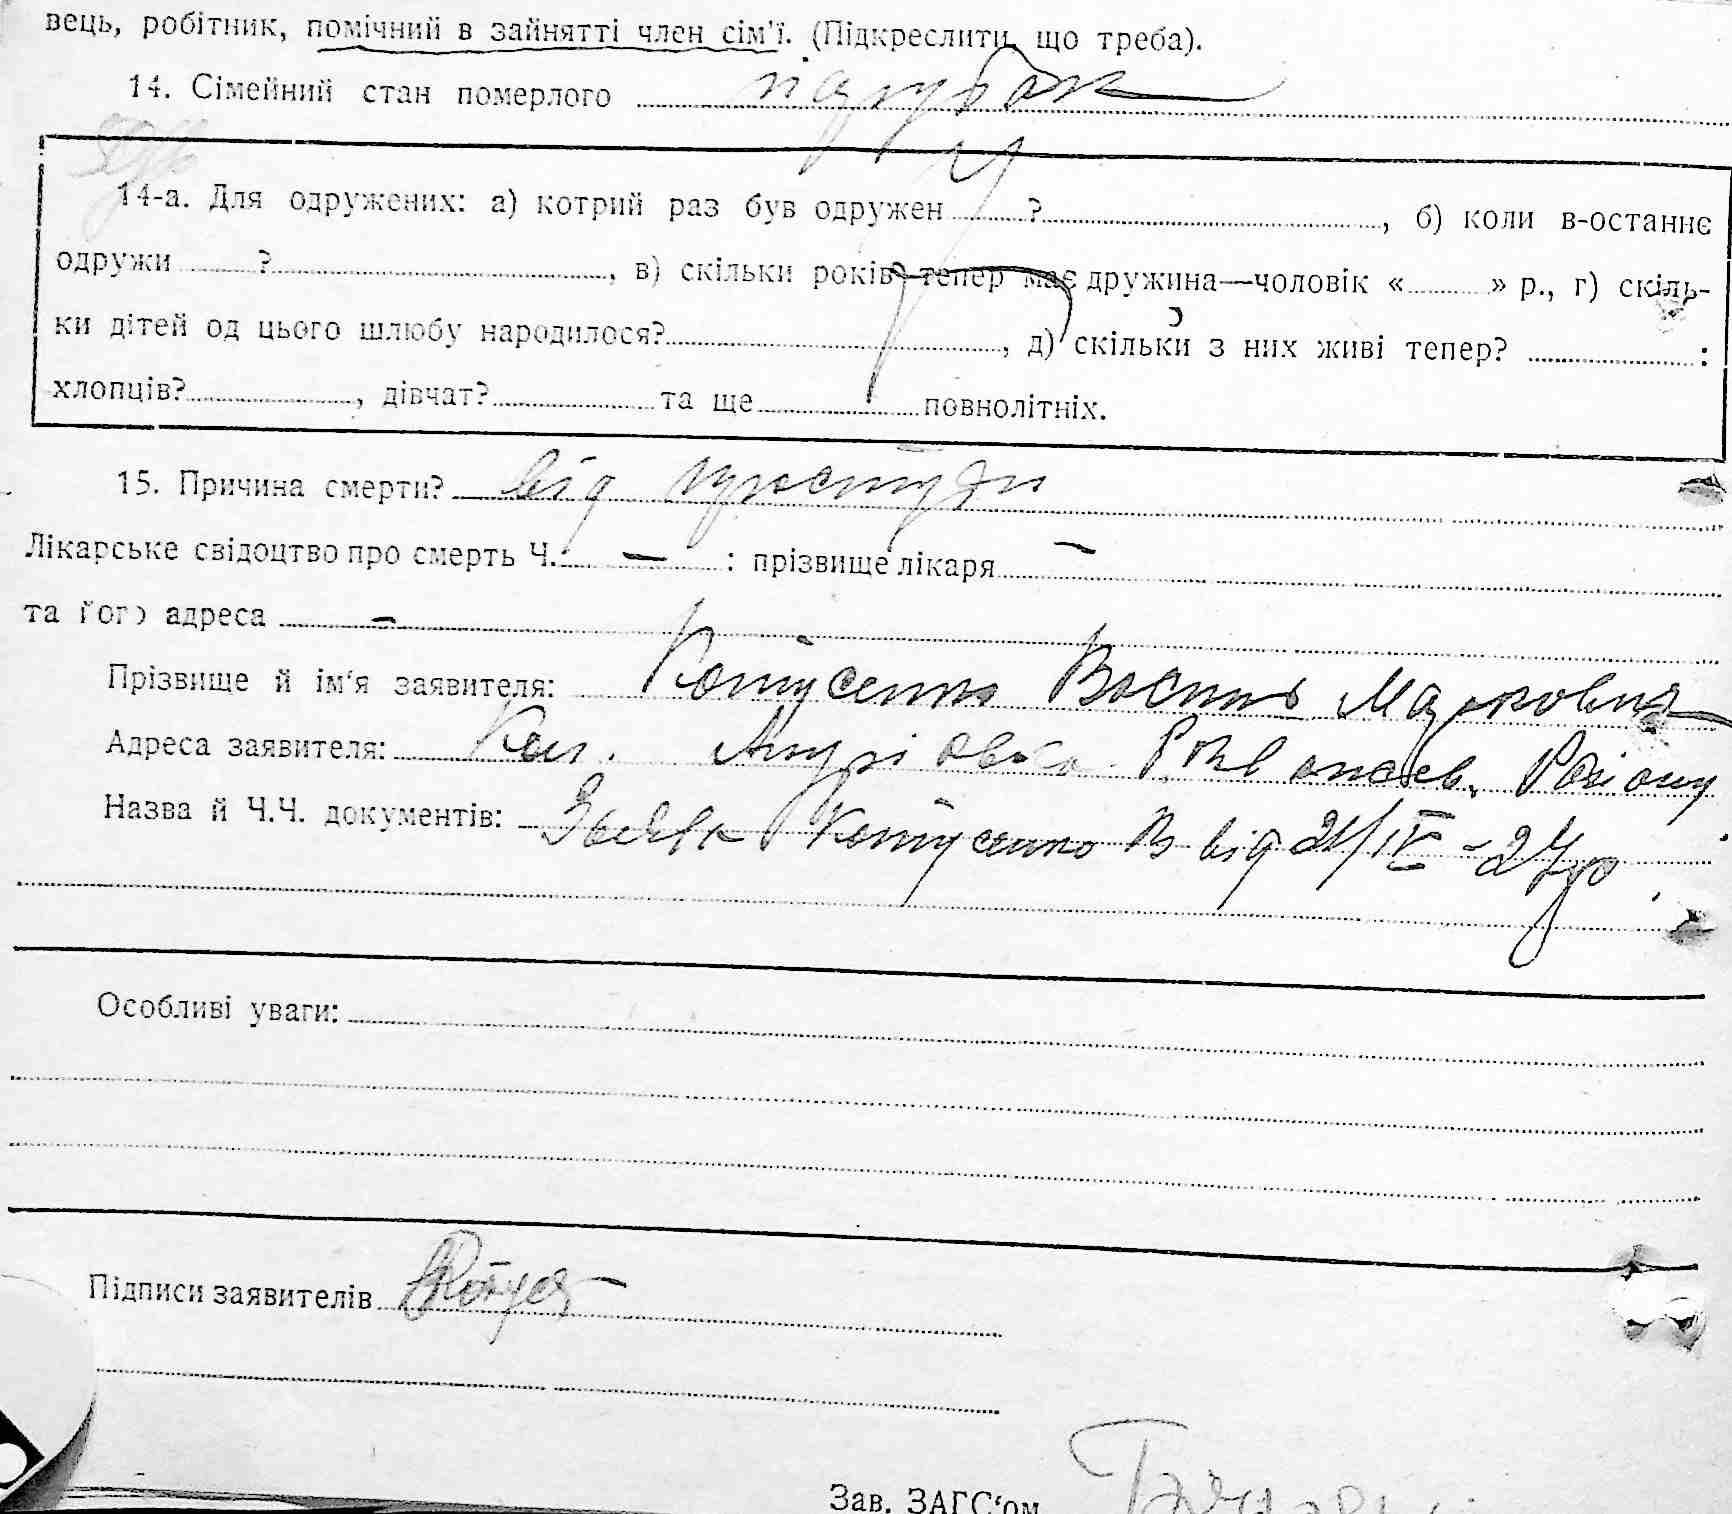 вець, робітник, помічний в зайнятті член сім'ї. (Підкреслити, що треба).
14. Сімейний стан померлого парубок
14-а. Для одружених: а) котрий раз був одружен ? , б) коли в-останнє
одружи ? , в) скільки років тепер має дружина—чоловік « » р., г) скіль-
ки дітей од цього шлюбу народилося? , д) скільки з них живі тепер? :
хлопців? , дівчат? та ще повнолітніх.
15. Причина смерти? від простуди
Лікарське свідоцтво про смерть Ч. — : прізвище лікаря —
та його адреса —
Прізвище й ім'я заявителя: Котусенко Василь Маркович
Адреса заявителя: Андріівка Району
Назва й Ч.Ч. документів: Заява Котусенко В від 21/IV-27 р
Особливі уваги:
Підписи заявителів Котусе
Зав. ЗАГС'ом